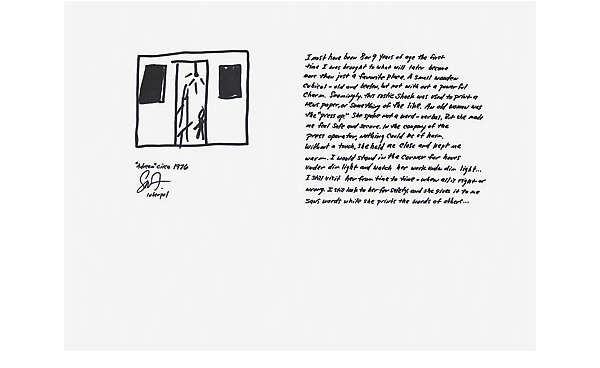 "dream" circa 1976
interpol
I must have been 8 or 9 years of age the first
time I was brought to what will later become
more than just a favorite place. A small wooden
cubical - old and beaten, but not with out a powerful
charm. Seemingly, this rustic shack was used to print a
news paper, or something of the like. An old woman was
the "press op." She spoke not a word - verbal, But she made
me feel safe and secure. In the company of the
press operator, nothing could be of harm.
Without a touch, she held me close and kept me
warm. I would stand in the corner for hours
under dim light and watch her work under dim light...
I still visit her from time to time - when all is right or
wrong. I still look to her for safety, and she gives it to me
sans words while she prints the words of others...